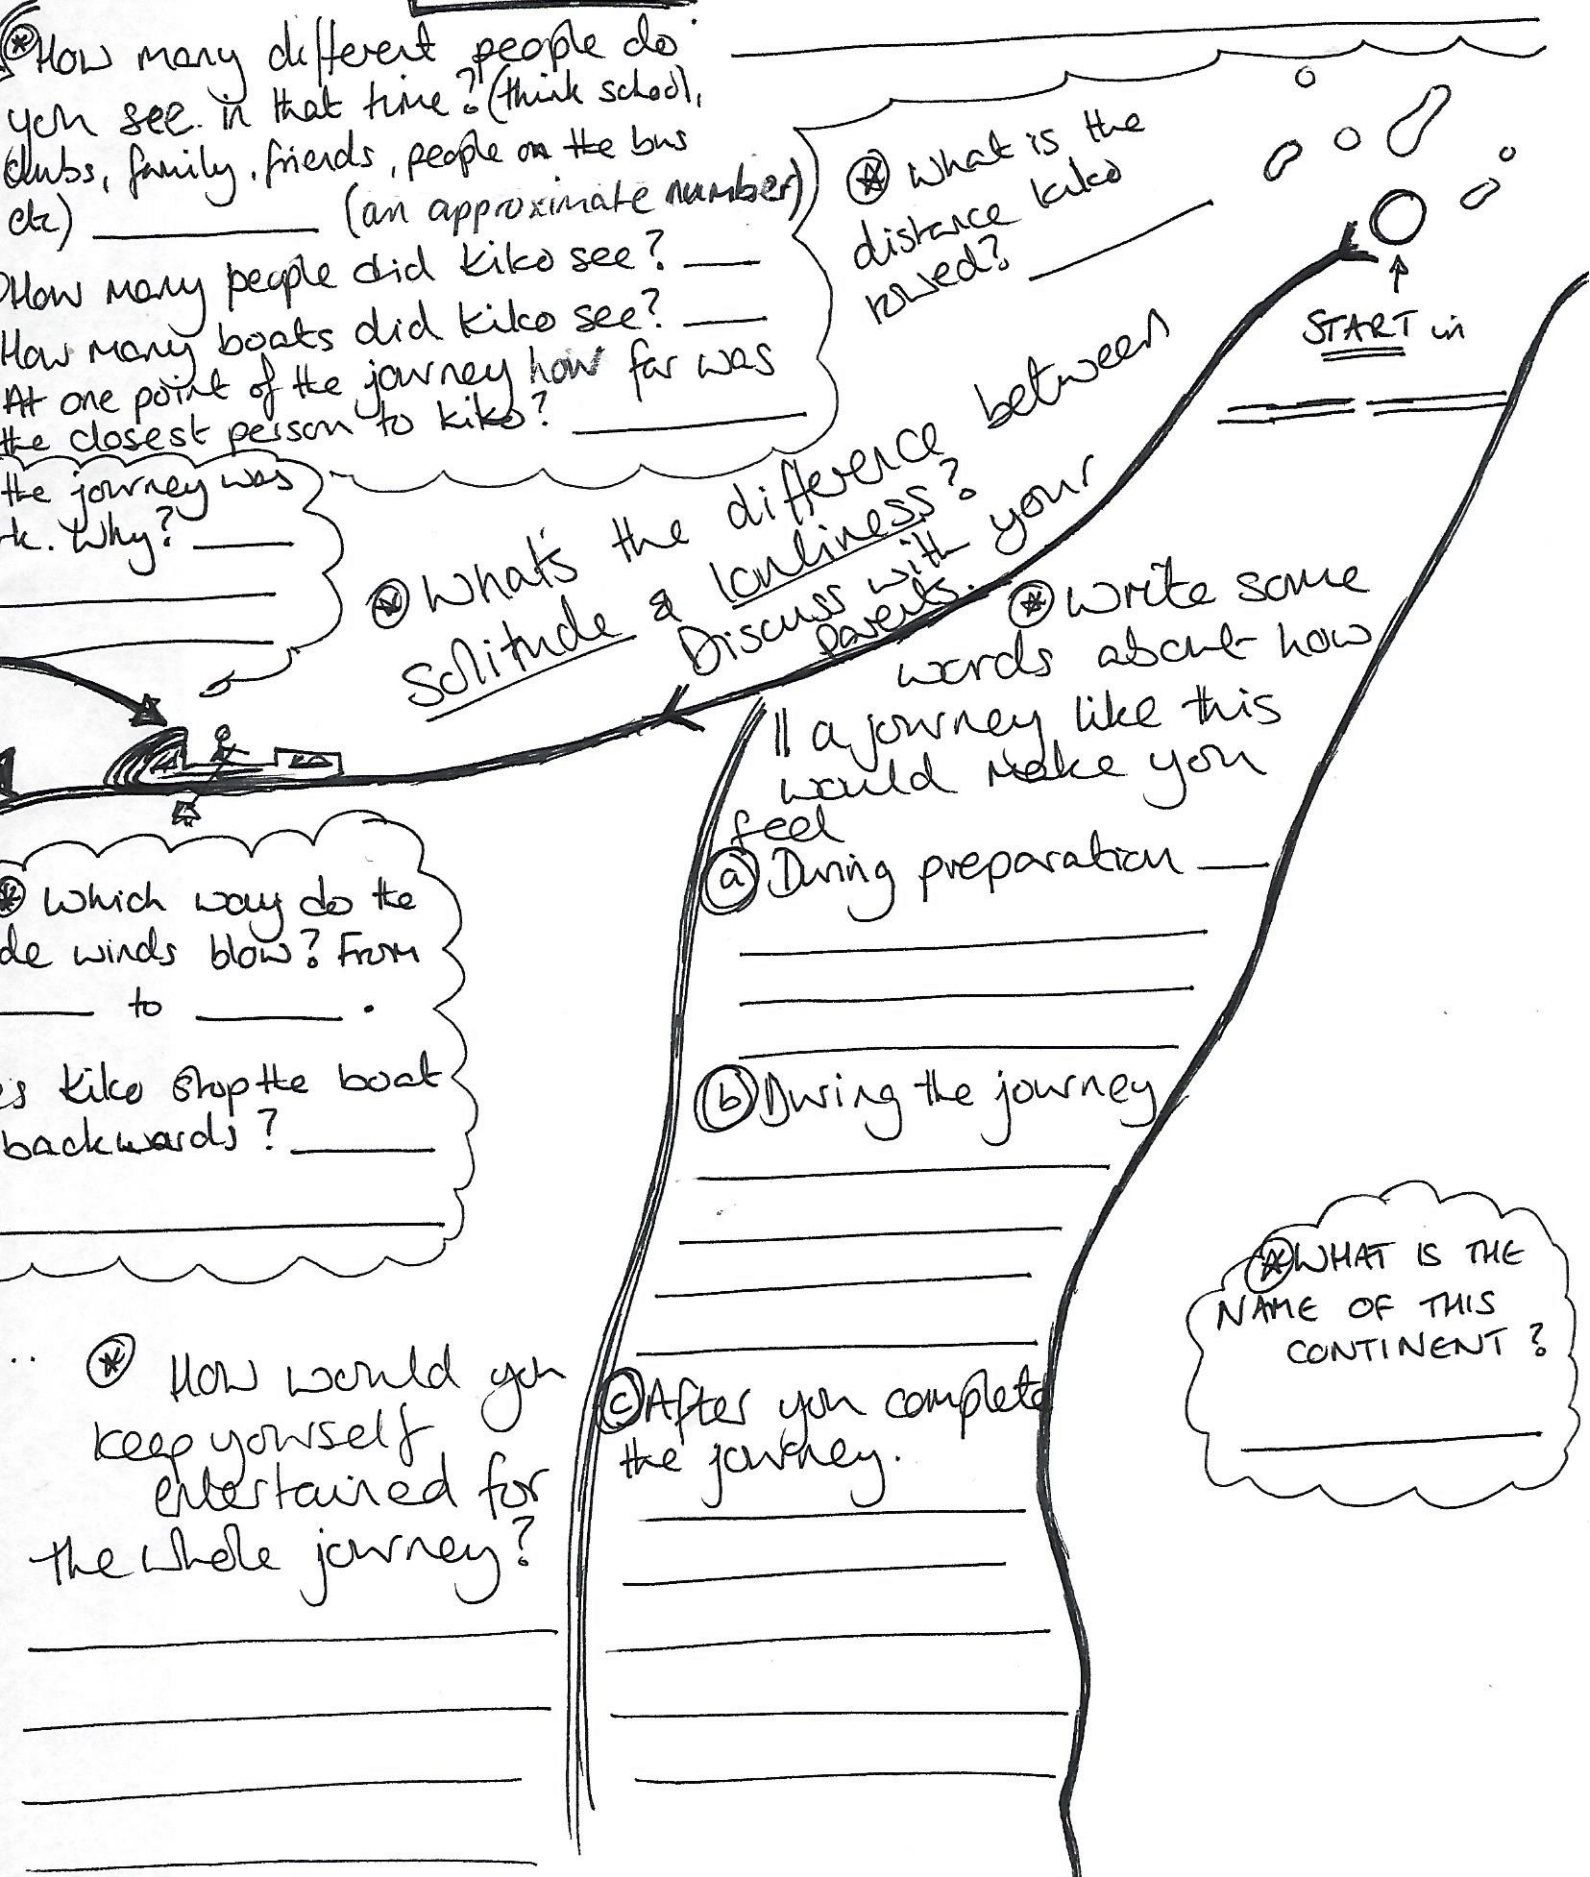 How many different people do
you see in that time? (think school,
clubs, family, friends, people on the bus
etc) (an approximate number)
How many people did Kiko see?
How many boats did Kiko see?
At one point of the journey how far was
the closest person to Kiko?
the journey was
k. Why?
What is the
distance Kiko
rowed?
START in
What's the difference between
solitude & lonliness?
Discuss with your
parents.
Write some
words about how
a journey like this
would make you
feel
a During preparation
b During the journey
c After you complete
the journey.
Which way do the
de winds blow? From
to .
es Kiko stop the boat
backwards?
.. How would you
keep yourself
entertained for
the whole journey?
WHAT IS THE
NAME OF THIS
CONTINENT?